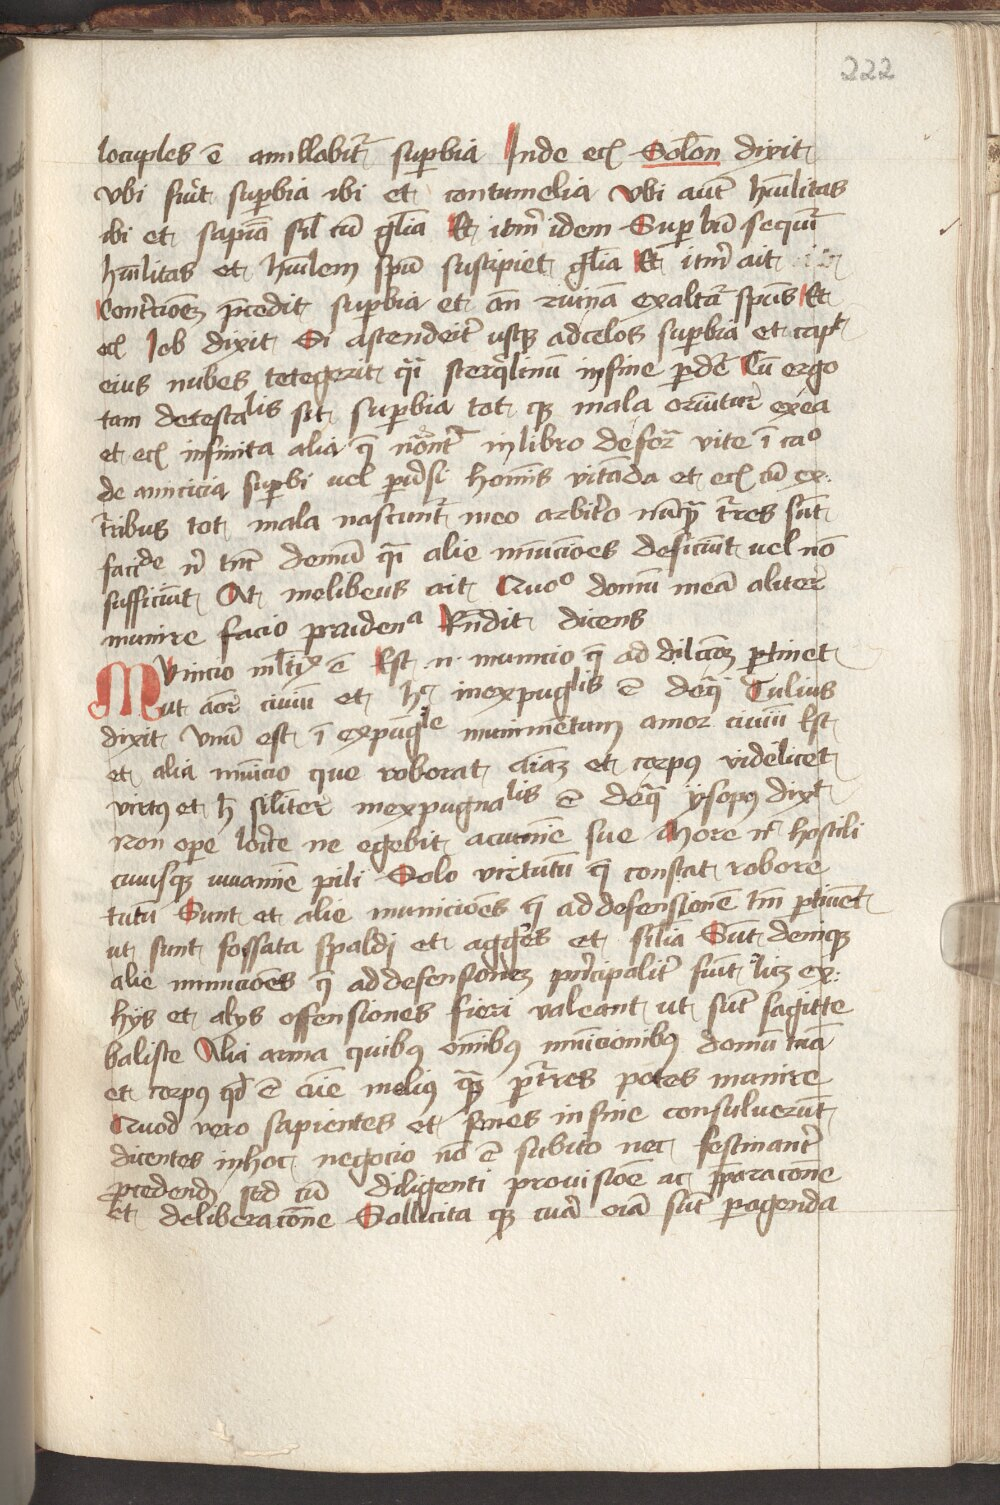 222
locuples ē anullabit᷑ sup̱bia Inde ecī Solon̄ dixit
vbi fuīt sup̱bia ibi et contumelia vbi aut̄ hūilitas
ibi et sapiā sil̄ cū gl̄ia Et itm̄ idem Sup̱bū sequit᷑
hūilitas et hūilem spū suscipiet gl̄ia Et itm̄ ait
Contricōem p̄cedit sup̱bia et an̄ ruinam exaltat᷑ spūs Et
ecī Iob dixit Si ascenderit usq̨ ad celos sup̱bia et cap̄t
eius nubes tetegerit q̄i sterq̄linū in fine p̱det᷑ Cū ergo
tam detestalis sit sup̱bia tot q̨ mala oriūtur ex ea
et ecī infinita alia q̄ nōant᷑ in libro de for̄ vite ī caº
de amicicia sup̱bi uel p̱id̄si homīs vitāda et ecī cū ex
t᷑ribus tot mala nascunt᷑ meo arbitrio nūq̄ t᷑res sūt
faciēde nō tn̄t domū q̄i alie mūicōes deficiūt uel nō
sufficiūt At melibeus ait Quoº domū meā aliter
munire facio prudenª Rn̄dit dicens
MVnicio ml̄tix̱ ē Est n̄ municio q̄ ad dilcc̄oem p̱tinet
ut aōr ciuiū et hᷓ inexpuglis ē deq̄ Tulius
dixit vnū est īexpūgle munimentum amor ciuiū Est
et alia mūicio que roborat aīam et corpus videlicet
virt9 et h̄ siliter inexpugnalis ē deq̄ ysopus dixt
Non ope lorice ne egebit acumīe sue More nō hostili
cuiusq̨ iuuamīe pili Solo virtutū q̄ constat robore
tutū Sunt et alie municiōes q̄ ad defensionē tm̄ p̱tinent
ut sunt fossata spaldi et agg̱es et silīa Sūt deniq̨
alie municiōes q̄ ad defensionem pricipalit᷑ fiūt licꝫ ex
hys et alys offensiones fieri valeant ut sūt sagitte
baliste Alia arma quibus om̄ibus mūicionibus domū tuā
et corpus qd̄ ē cīe melius q̄ꝫ p̱ t᷑res potes munire
Quod vero sapientes et senes in fine consuluerūt
dicentes in hoc negocio nō ē subito nec festinant᷑
p̱cedendū sed cū diligenti prouisiōe ac p̱paracōne
Et deliberacōne Sollicita q̨ cura oīa sūt p̱agenda